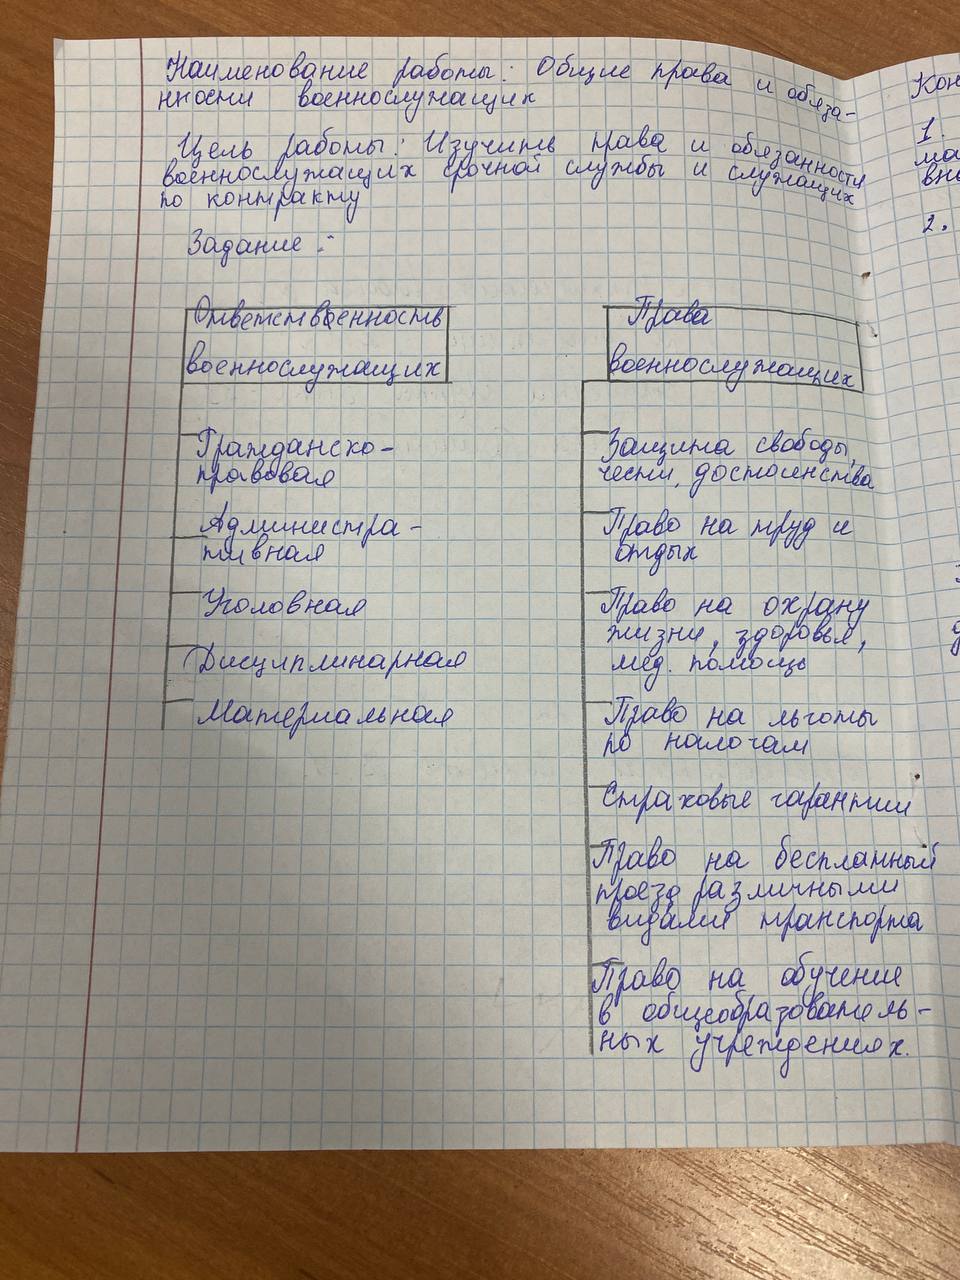 Наименование работы: Общие права и обяза-
нности военнослужащих
Цель работы: Изучить права и обязанности
военнослужащих срочной службы и служащих
по контракту
Задание :
Ответственность
военнослужащих
Гражданско-
правовая
Администра-
тивная
Уголовная
Дисциплинарная
Материальная
Права
военнослужащих
Защита свободы,
чести, достоинства
Право на труд и
отдых
Право на охрану
жизни, здоровья,
мед. помощь
Право на льготы
по налогам
Страховые гарантии
Право на бесплатный
проезд различными
видами транспорта
Право на обучение
в общеобразователь-
ных учреждениях.
Кон
1.
2.